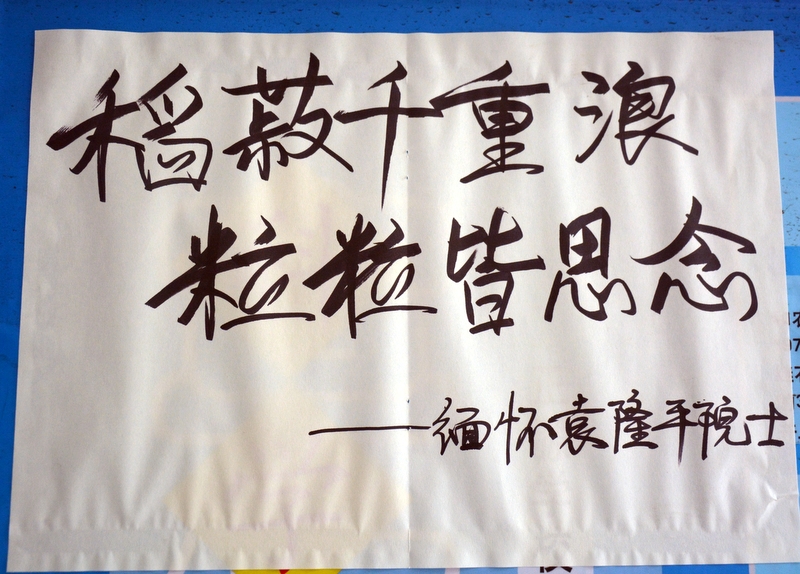 稻菽千重浪
粒粒皆思念
——缅怀袁隆平院士